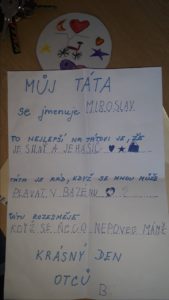 MŮJ TÁTA
se jmenuje MIROSLAV
TO NEJLEPŠÍ NA TÁTOVI JE, ŽE
JE SILNÝ A JE HASIČ
TÁTA JE RÁD, KDYŽ SE MNOU MŮŽE
PLAVAT V BAZÉNU
TÁTU ROZESMĚJE
KDYŽ SE NĚCO NEPOVEDE MÁMĚ
KRÁSNÝ DEN
OTCŮ